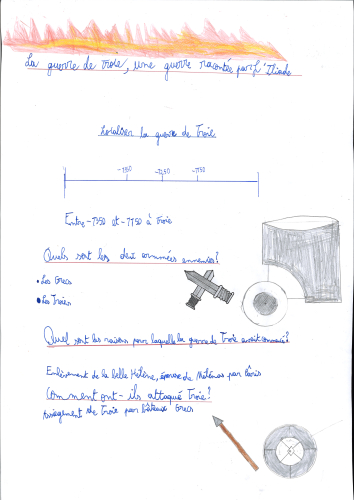 La guerre de troie, une guerre racontée par L'Iliade
Localiser la guerre de Troie.
-1350 -1250 -1150
Entre -1350 et -1150 à Troie
Quels sont les deux armées ennemies?
• Les Grecs
• Les Troiens
Quel sont les raisons pour laquelle la guerre de Troie avait commencé?
Enlèvement de la belle Hélène, épouse de Ménélas par Pâris
Comment ont-ils attaqué Troie?
Assiegement de Troie par bâteaux Grecs